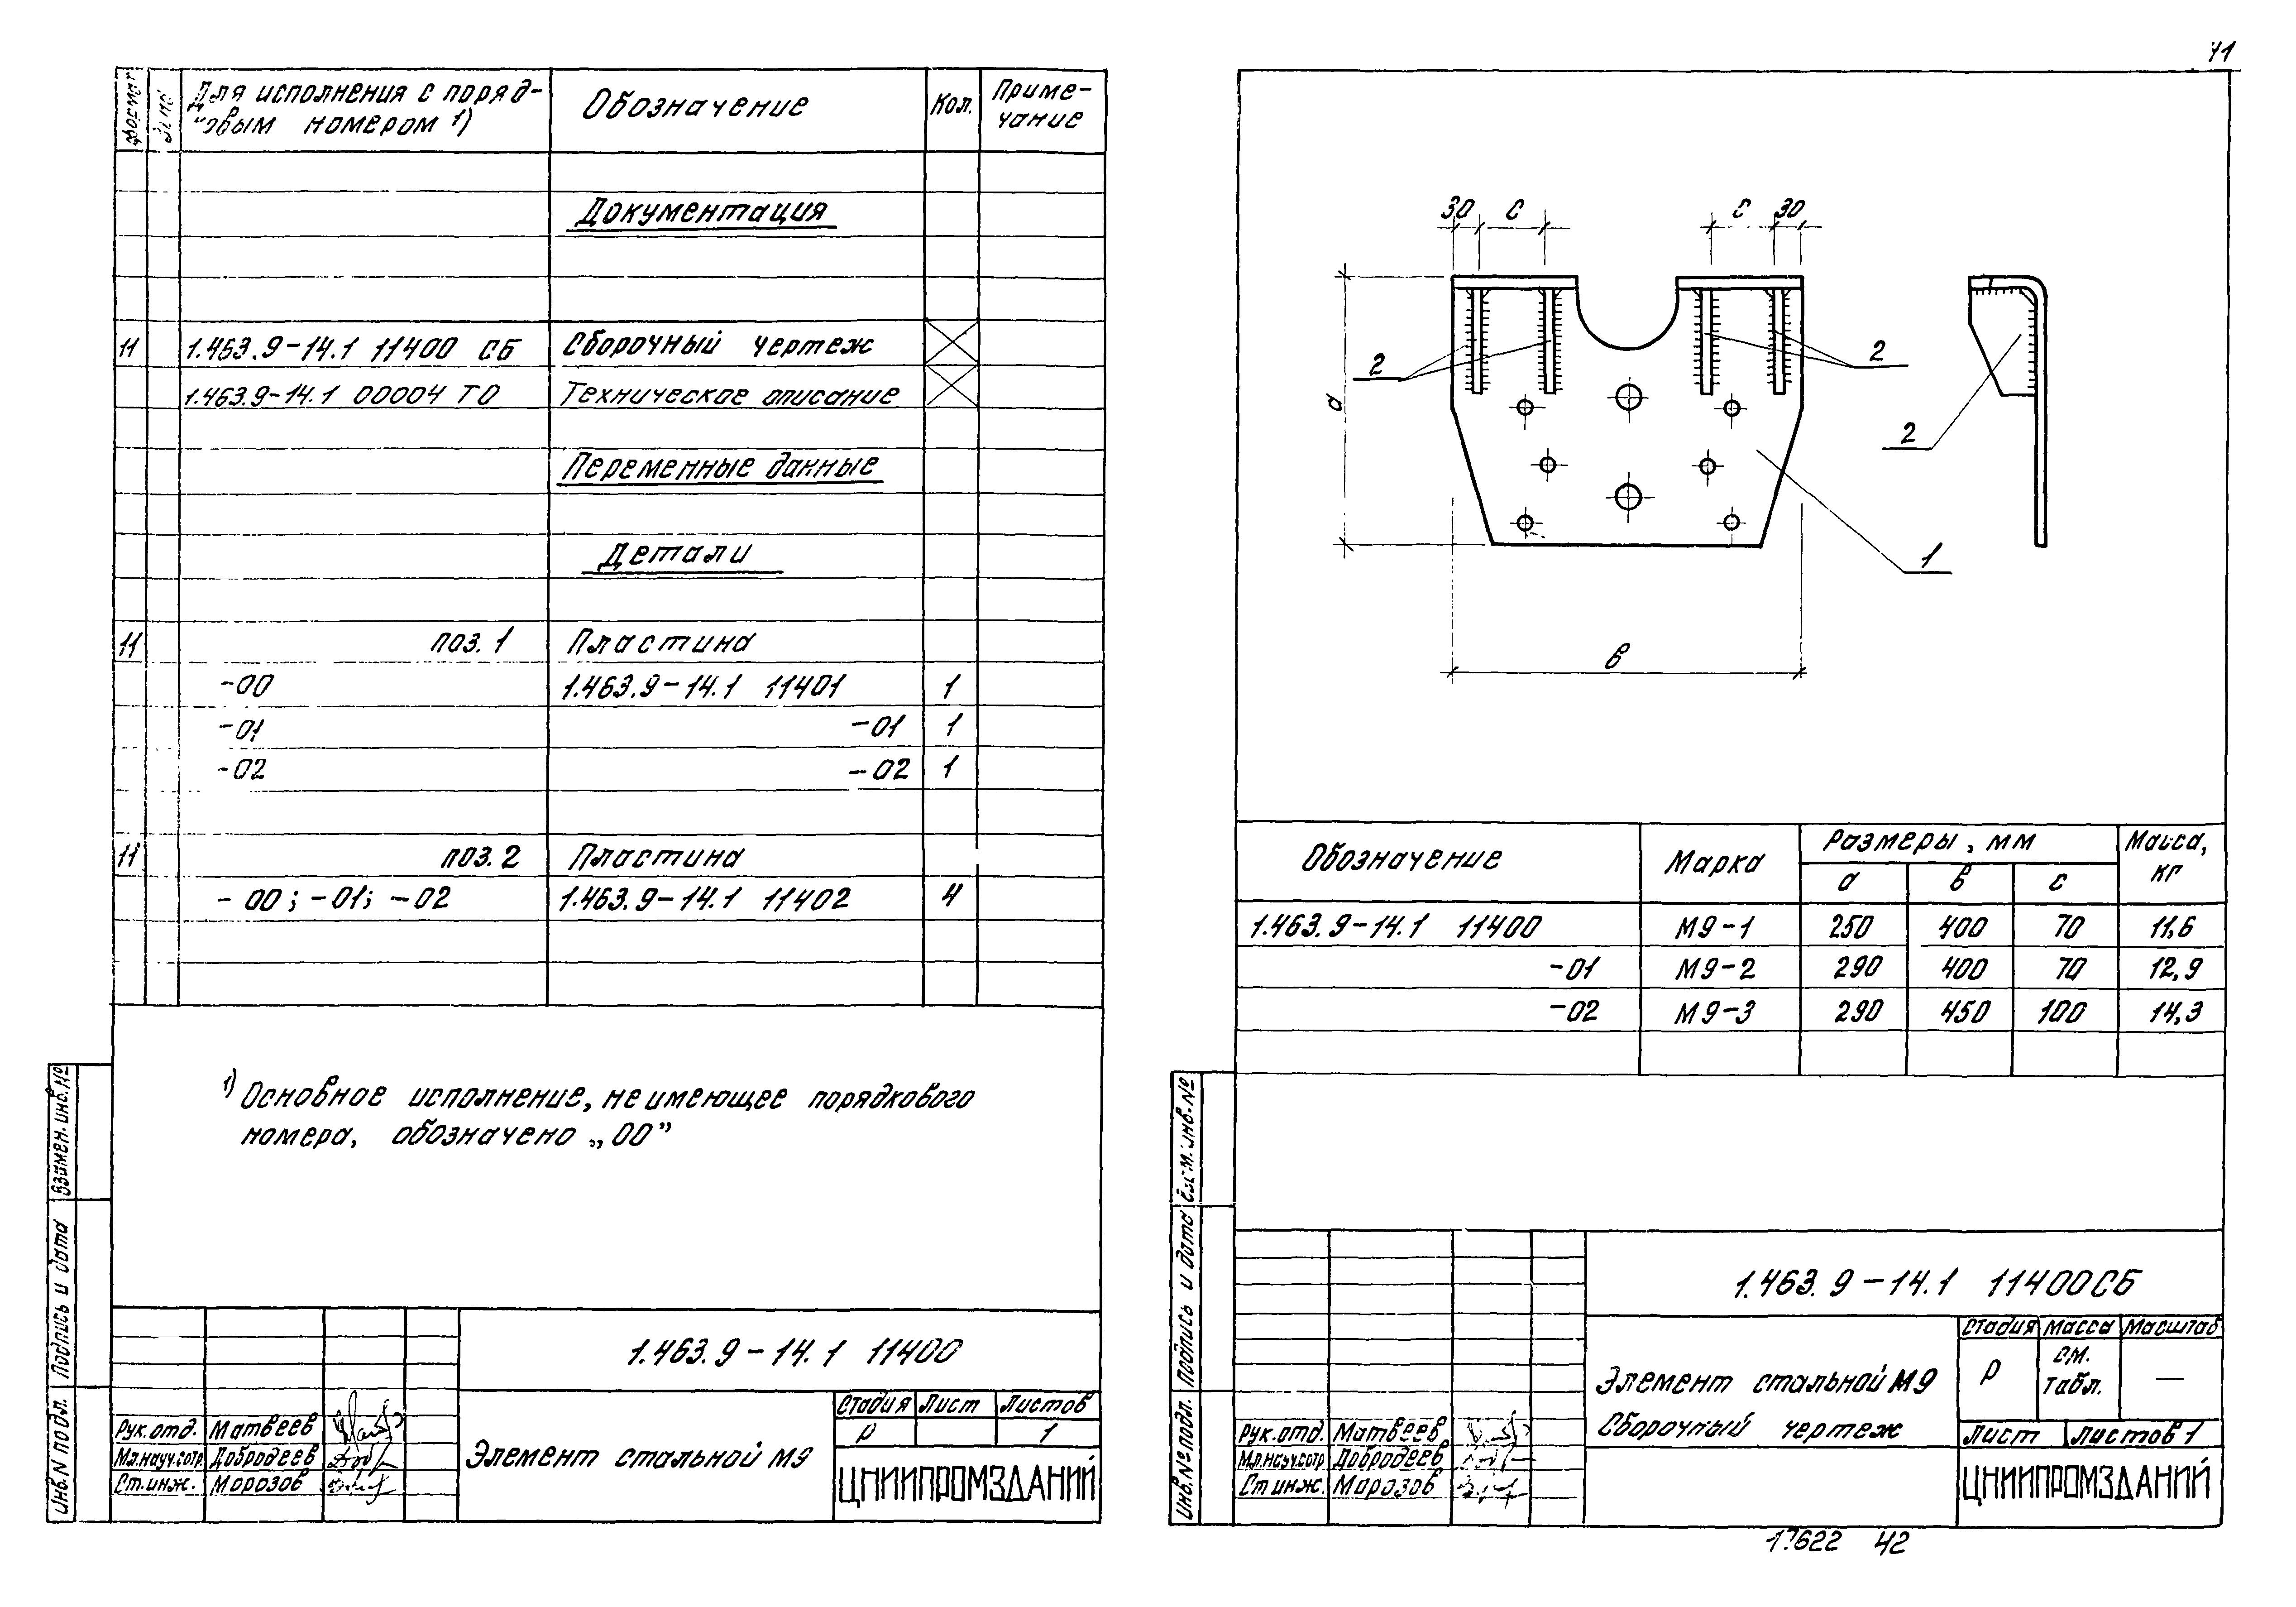 41
формат
зона
Для исполнения с поряд-
ковым номером 1)
Обозначение
Кол.
Приме-
чание
Документация
11 1.463.9-14.1 11400 СБ Сборочный чертеж
1.463.9-14.1 00004 ТО Техническое описание
Переменные данные
Детали
11 поз. 1 Пластина
-00 1.463.9-14.1 11401 1
-01 -01 1
-02 -02 1
11 поз. 2 Пластина
-00; -01; -02 1.463.9-14.1 11402 4
1) Основное исполнение, не имеющее порядкового
номера, обозначено „00”
Взамен. инв. №
Подпись и дата
Инв. № подл.
1.463.9-14.1 11400
Рук. отд. Матвеев
Мл. науч. сотр. Добродеев
Ст. инж. Морозов
Элемент стальной М9
Стадия Лист Листов
Р 1
ЦНИИПРОМЗДАНИЙ
30 с с 30
а
2
2
2
1
в
Обозначение Марка Размеры, мм Масса, кг
а в с
1.463.9-14.1 11400 М9-1 250 400 70 11,6
-01 М9-2 290 400 70 12,9
-02 М9-3 290 450 100 14,3
инв. №
Подпись и дата
Инв. № подл.
1.463.9-14.1 11400СБ
Рук. отд. Матвеев
Мл. науч. сотр Добродеев
Ст инж. Морозов
Элемент стальной М9
Сборочный чертеж
Стадия Масса Масштаб
Р см. табл. —
Лист Листов 1
ЦНИИПРОМЗДАНИЙ
42